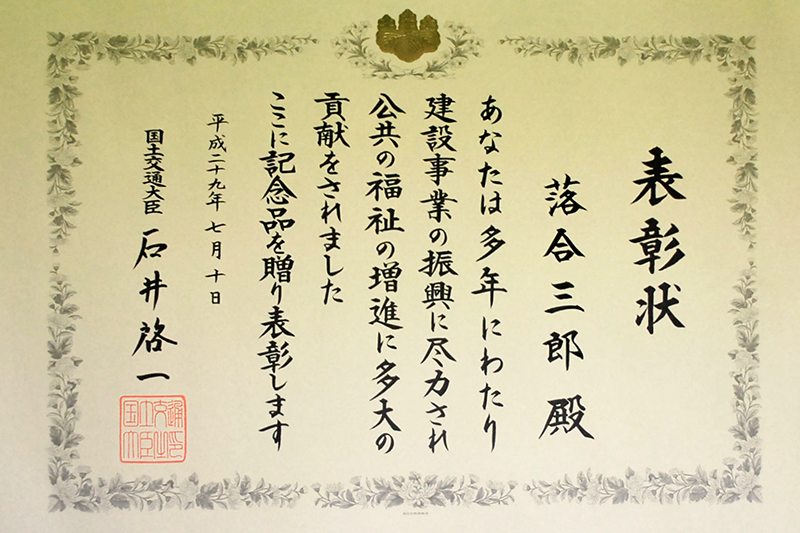 表彰状
落合三郎 殿
あなたは多年にわたり
建設事業の振興に尽力され
公共の福祉の増進に多大の
貢献をされました
ここに記念品を贈り表彰します
平成二十九年 七月 十日
国土交通大臣 石井啓一